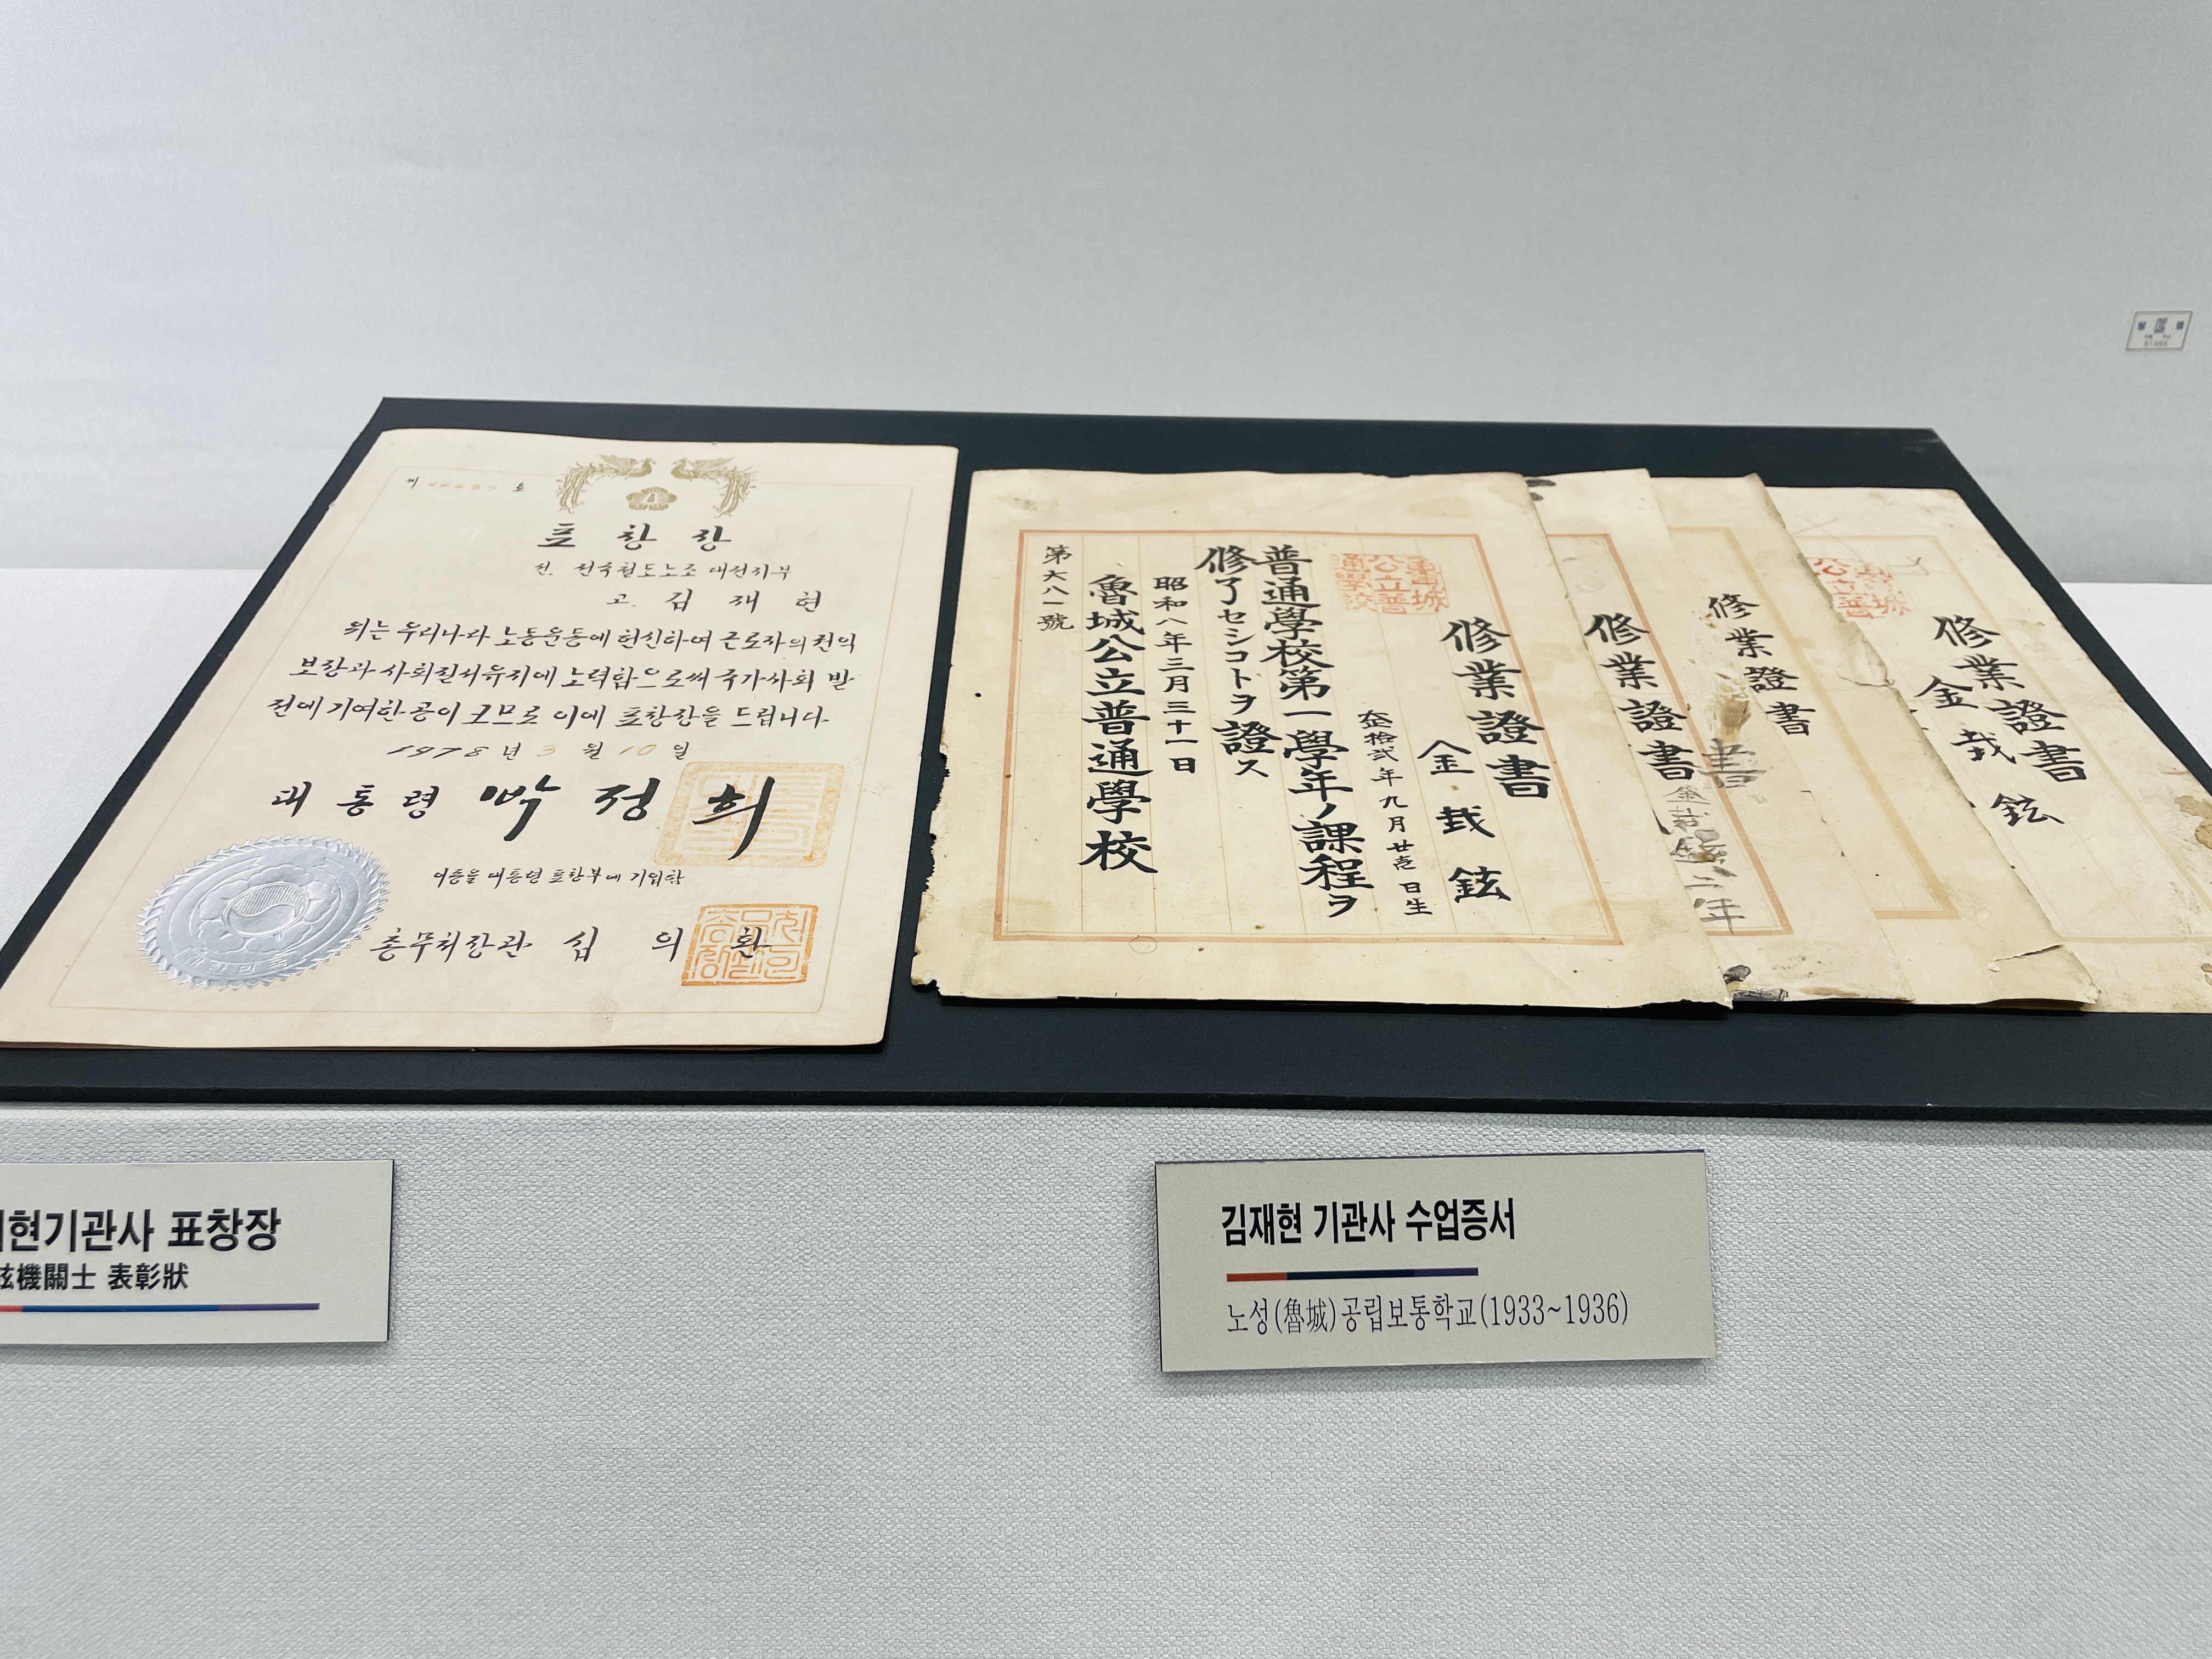 표창장
전. 전국철도노조 대전지부
고. 김재현
위는 우리나라 노동운동에 헌신하여 근로자의 권익
보장과 사회질서유지에 노력함으로써 국가사회 발
전에 기여한 공이 크므로 이에 표창장을 드립니다
1978년 3월 10일
대통령 박정희
이증을 대통령 표창부에 기입함
총무처장관 심의환
修業證書
金裁鉉
九月廿壱日生
普通學校第一學年ノ課程ヲ
修了セシコトヲ證ス
昭和八年三月三十一日
魯城公立普通學校
第六八一號
修業證書
修業證書
修業證書
金裁鉉
현기관사 표창장
機關士 表彰狀
김재현 기관사 수업증서
노성(魯城)공립보통학교(1933~1936)